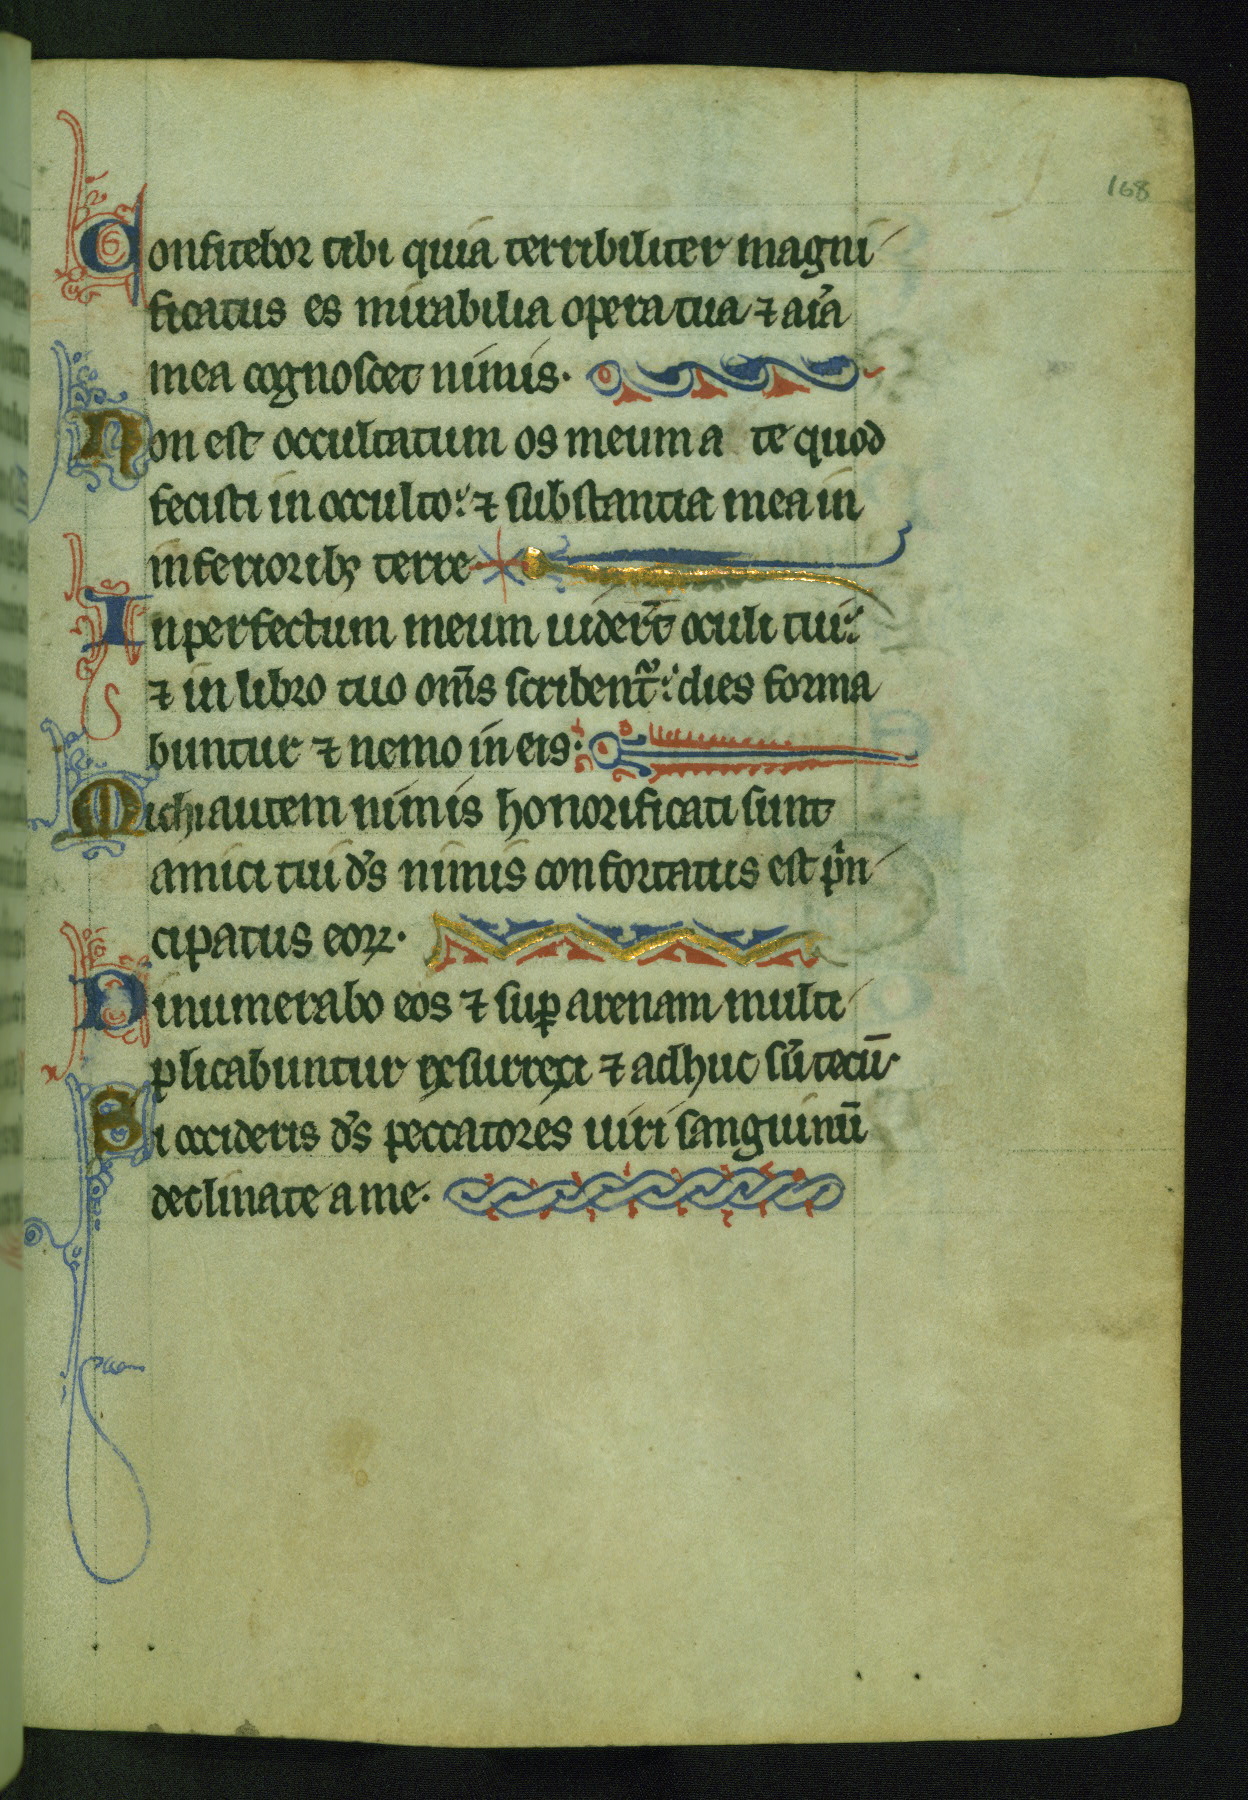 168
Confitebor tibi quia terribiliter magni
ficatus es mirabilia opera tua ⁊ aı̃a
mea cognoscet nimis·
Non est occultatum os meum a te quod
fecisti in occulto: ⁊ substantia mea in
inferiorib₃ terre
Inperfectum meum uider̃t oculi tui:
⁊ in libro tuo om̃s scribent᷑: dies forma
buntur ⁊ nemo in eis:
Michi autem nimis honorificati sunt
amici tui d̃s nimis confortatus est pⁱn
cipatus eoꝝ·
Dinumerabo eos ⁊ suꝑ arenam multi
plicabuntur exsurrexi ⁊ adhuc sũ tecũ
Si occideris d̃s peccatores uiri sanguinũ
declinate a me·